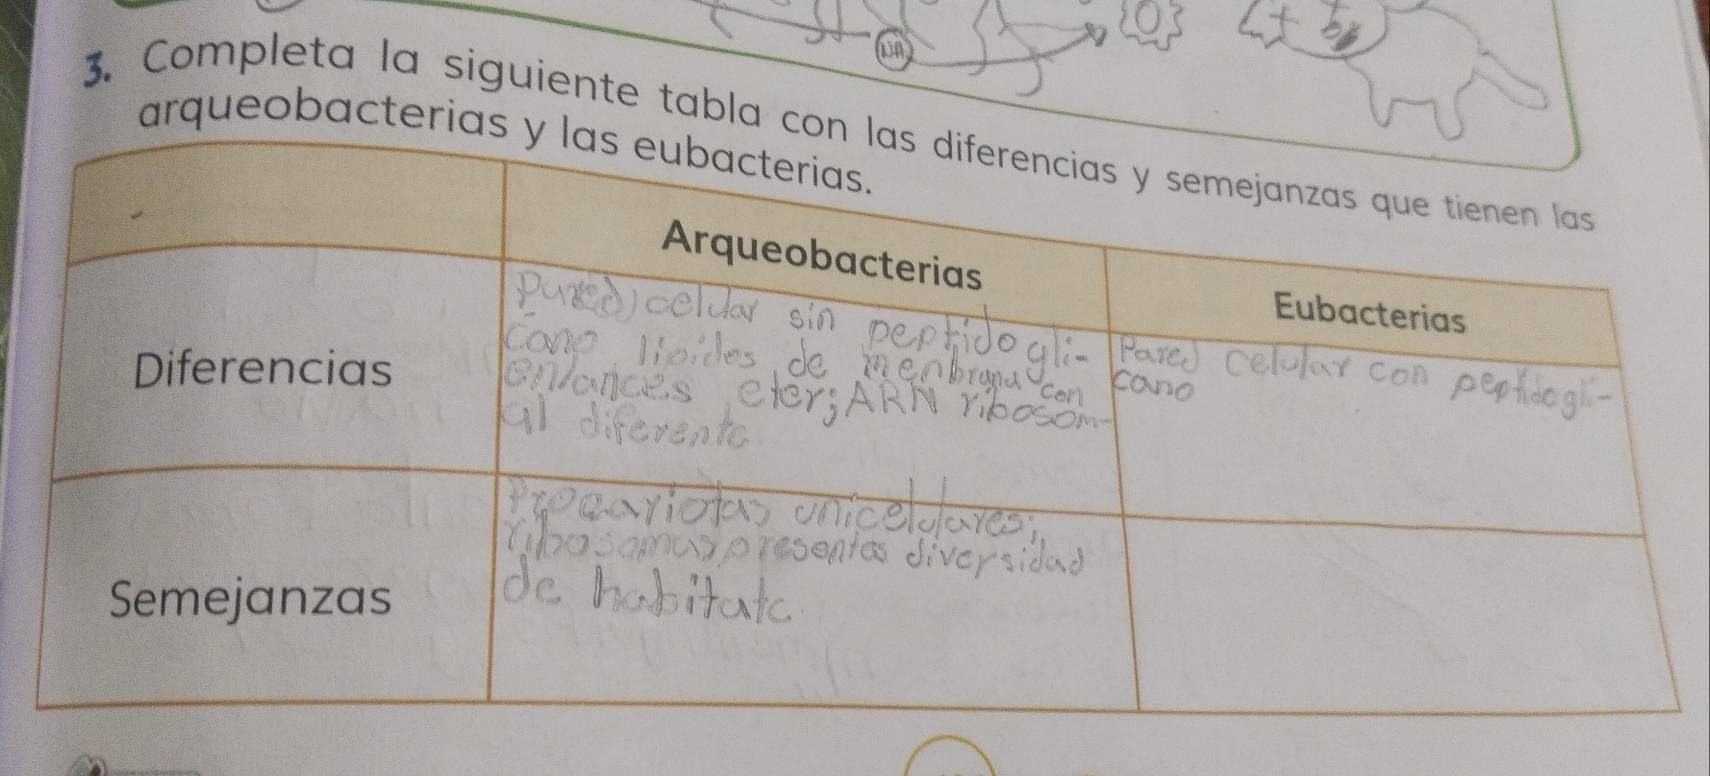 3. Completa la siguiente tabla con las diferencias y semejanzas que tienen las
arqueobacterias y las eubacterias.
Arqueobacterias
Eubacterias
Diferencias
Pared celular sin peptidogli-
cano lipides de menbrana con
enlances eter; ARN ribosom-
al diferente
Pared celular con peptidogli-
cano
Semejanzas
Procariotas unicelulares;
ribosomas presentas diversidad
de habitatc